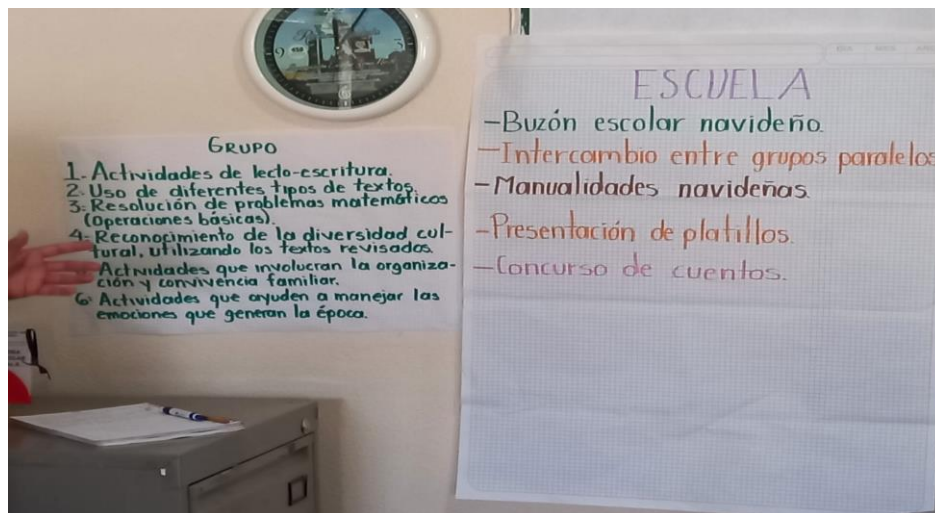 GRUPO
1.- Actividades de lecto-escritura.
2.- Uso de diferentes tipos de textos.
3.- Resolución de problemas matemáticos
(Operaciones básicas).
4.- Reconocimiento de la diversidad cul-
tural, utilizando los textos revisados.
Actividades que involucran la organiza-
ción y convivencia familiar.
6.- Actividades que ayuden a manejar las
emociones que generan la época.
ESCUELA
-Buzón escolar navideño.
-Intercambio entre grupos paralelos
-Manualidades navideñas.
-Presentación de platillos.
-Concurso de cuentos.
9
3
6